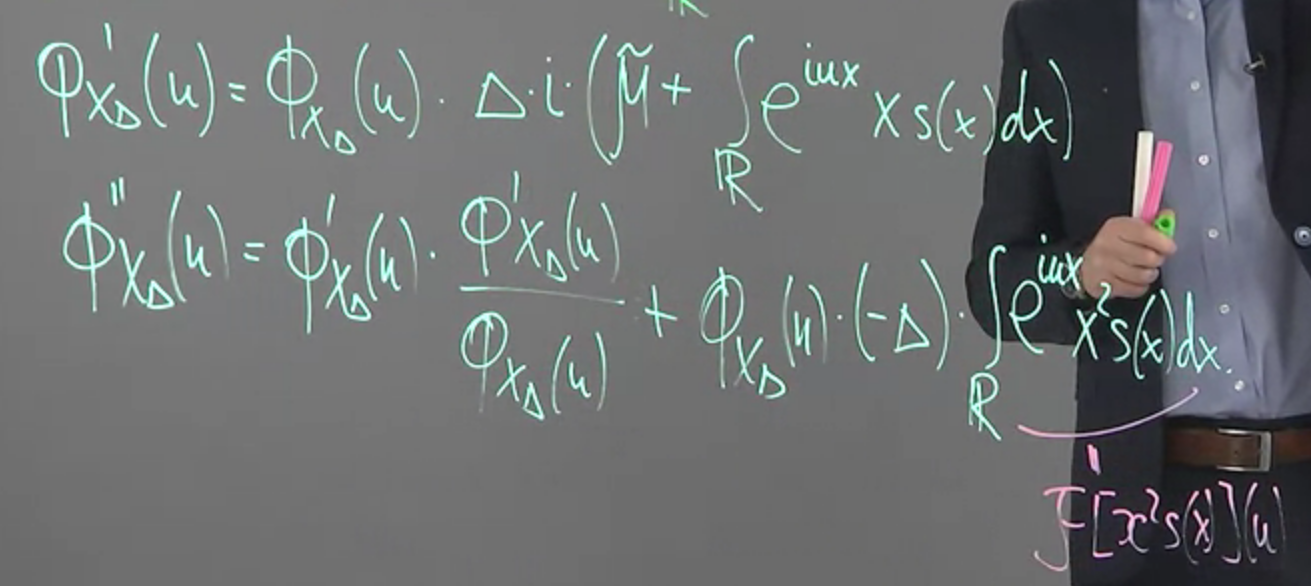 ℝ
Φ'_{X_Δ}(u) = Φ_{X_Δ}(u) · Δ·i·(μ̃ + ∫_ℝ e^{iux} x s(x)dx)
Φ''_{X_Δ}(u) = Φ'_{X_Δ}(u) · Φ'_{X_Δ}(u) / Φ_{X_Δ}(u) + Φ_{X_Δ}(u)·(-Δ)·∫_ℝ e^{iux} x²s(x)dx.
"
F[x²s(x)](u)